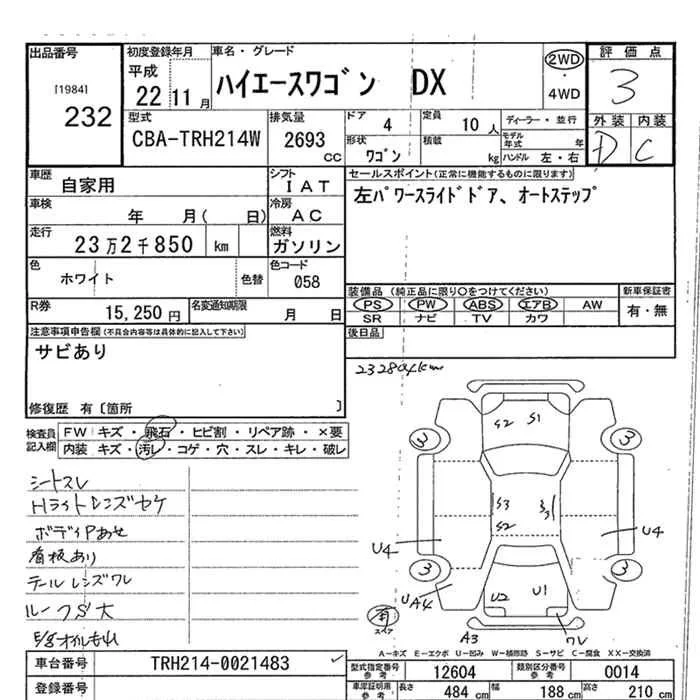 出品番号 初度登録年月 車名・グレード 評価点
[1984] 232 平成 22 11月 ハイエースワゴン DX 2WD・4WD 3
型式 排気量 ドア 4 定員 10人 ディーラー・並行 外装 内装
CBA-TRH214W 2693cc 形状 ワゴン 積載 kg モデル年式 年 ハンドル 左・右 D C
車歴 自家用 シフト IAT セールスポイント(正常に機能するものに限ります)
車検 年 月( 日) 冷房 AC 左パワースライドドア、オートステップ
走行 23万2千850 km 燃料 ガソリン
色 ホワイト 色替 色コード 058
装備品(純正品に限り○をつけてください) 新車保証書
R券 15,250円 名変通知期限 月 日 PS PW ABS エアB AW 有・無
SR ナビ TV カワ
注意事項申告欄(不具合内容等は具体的に記入して下さい) 後日品
サビあり
232804km
修復歴 有〔箇所 〕
検査員記入欄 FW キズ・飛石・ヒビ割・リペア跡・×要
内装 キズ・汚レ・コゲ・穴・スレ・キレ・破レ
S2 S1
3 3
シートスレ
Hライトレンズヤケ
S3
ボディPあせ
S2
看板あり
U4 U4
テールレンズワレ
3 3
U2 U1
UA4
ルーフS大
スペア
A3
A-キズ E-エクボ U-凹ミ W-補修跡 S-サビ C-腐食 XX-交換済
車台番号 TRH214-0021483 型式指定番号 参考 12604 類別区分番号 参考 0014
登録番号 車庫証明用 参考 長さ 484cm 幅 188cm 高さ 210cm